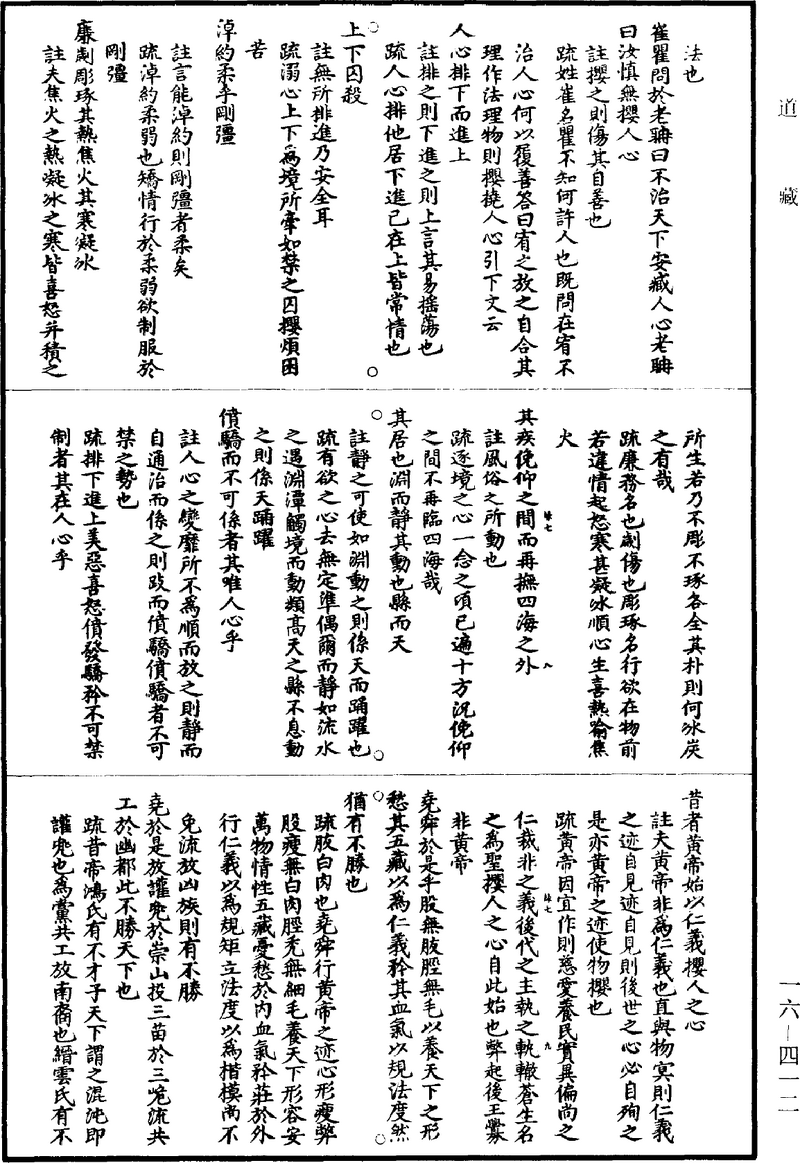 道藏
一六—四一二
法也
崔瞿問於老聃曰不治天下安臧人心老聃
曰汝慎無攖人心
註攖之則傷其自善也
疏姓崔名瞿不知何許人也既問在宥不
治人心何以履善答曰宥之放之自合其
理作法理物則攖撓人心引下文云
人心排下而進上
註排之則下進之則上言其易搖蕩也
疏人心排他居下進已在上皆常情也
上下囚殺
註無所排進乃安全耳
疏溺心上下為境所牽如禁之囚攖煩困
苦
淖約柔乎剛彊
註言能淖約則剛彊者柔矣
疏淖約柔弱也矯情行於柔弱欲制服於
剛彊
廉劌彫琢其熱焦火其寒凝冰
註夫焦火之熱凝冰之寒皆喜怒并積之
所生若乃不彫不琢各全其朴則何冰炭
之有哉
疏廉務名也劌傷也彫琢名行欲在物前
若違情起怒寒甚凝冰順心生喜熱踰焦
火
其疾俛仰之間而再撫四海之外
註風俗之所動也
疏逐境之心一念之頃已遍十方況俛仰
之間不再臨四海哉
其居也淵而靜其動也縣而天
註靜之可使如淵動之則係天而踊躍也
疏有欲之心去無定準偶爾而靜如流水
之遇淵潭觸境而動類高天之縣不息動
之則係天踊躍
僨驕而不可係者其唯人心乎
註人心之變靡所不為順而放之則靜而
自通治而係之則跂而僨驕僨驕者不可
禁之勢也
疏排下進上美惡喜怒僨發驕矜不可禁
制者其在人心乎
昔者黃帝始以仁義攖人之心
註夫黃帝非為仁義也直與物冥則仁義
之迹自見迹自見則後世之心必自殉之
是亦黃帝之迹使物攖也
疏黃帝因宜作則慈愛養民實異偏尚之
仁裁非之義後代之主執之軌轍蒼生名
之為聖攖人之心自此始也弊起後王釁
非黃帝
堯舜於是乎股無胈脛無毛以養天下之形
愁其五藏以為仁義矜其血氣以規法度然
猶有不勝也
疏胈白肉也堯舜行黃帝之迹心形瘦弊
股瘦無白肉脛禿無細毛養天下形容安
萬物情性五藏憂愁於內血氣矜莊於外
行仁義以為規矩立法度以為楷模尚不
免流放凶族則有不勝
堯於是放讙兜於崇山投三苗於三峗流共
工於幽都此不勝天下也
疏昔帝鴻氏有不才子天下謂之混沌即
讙兜也為黨共工放南裔也縉雲氏有不